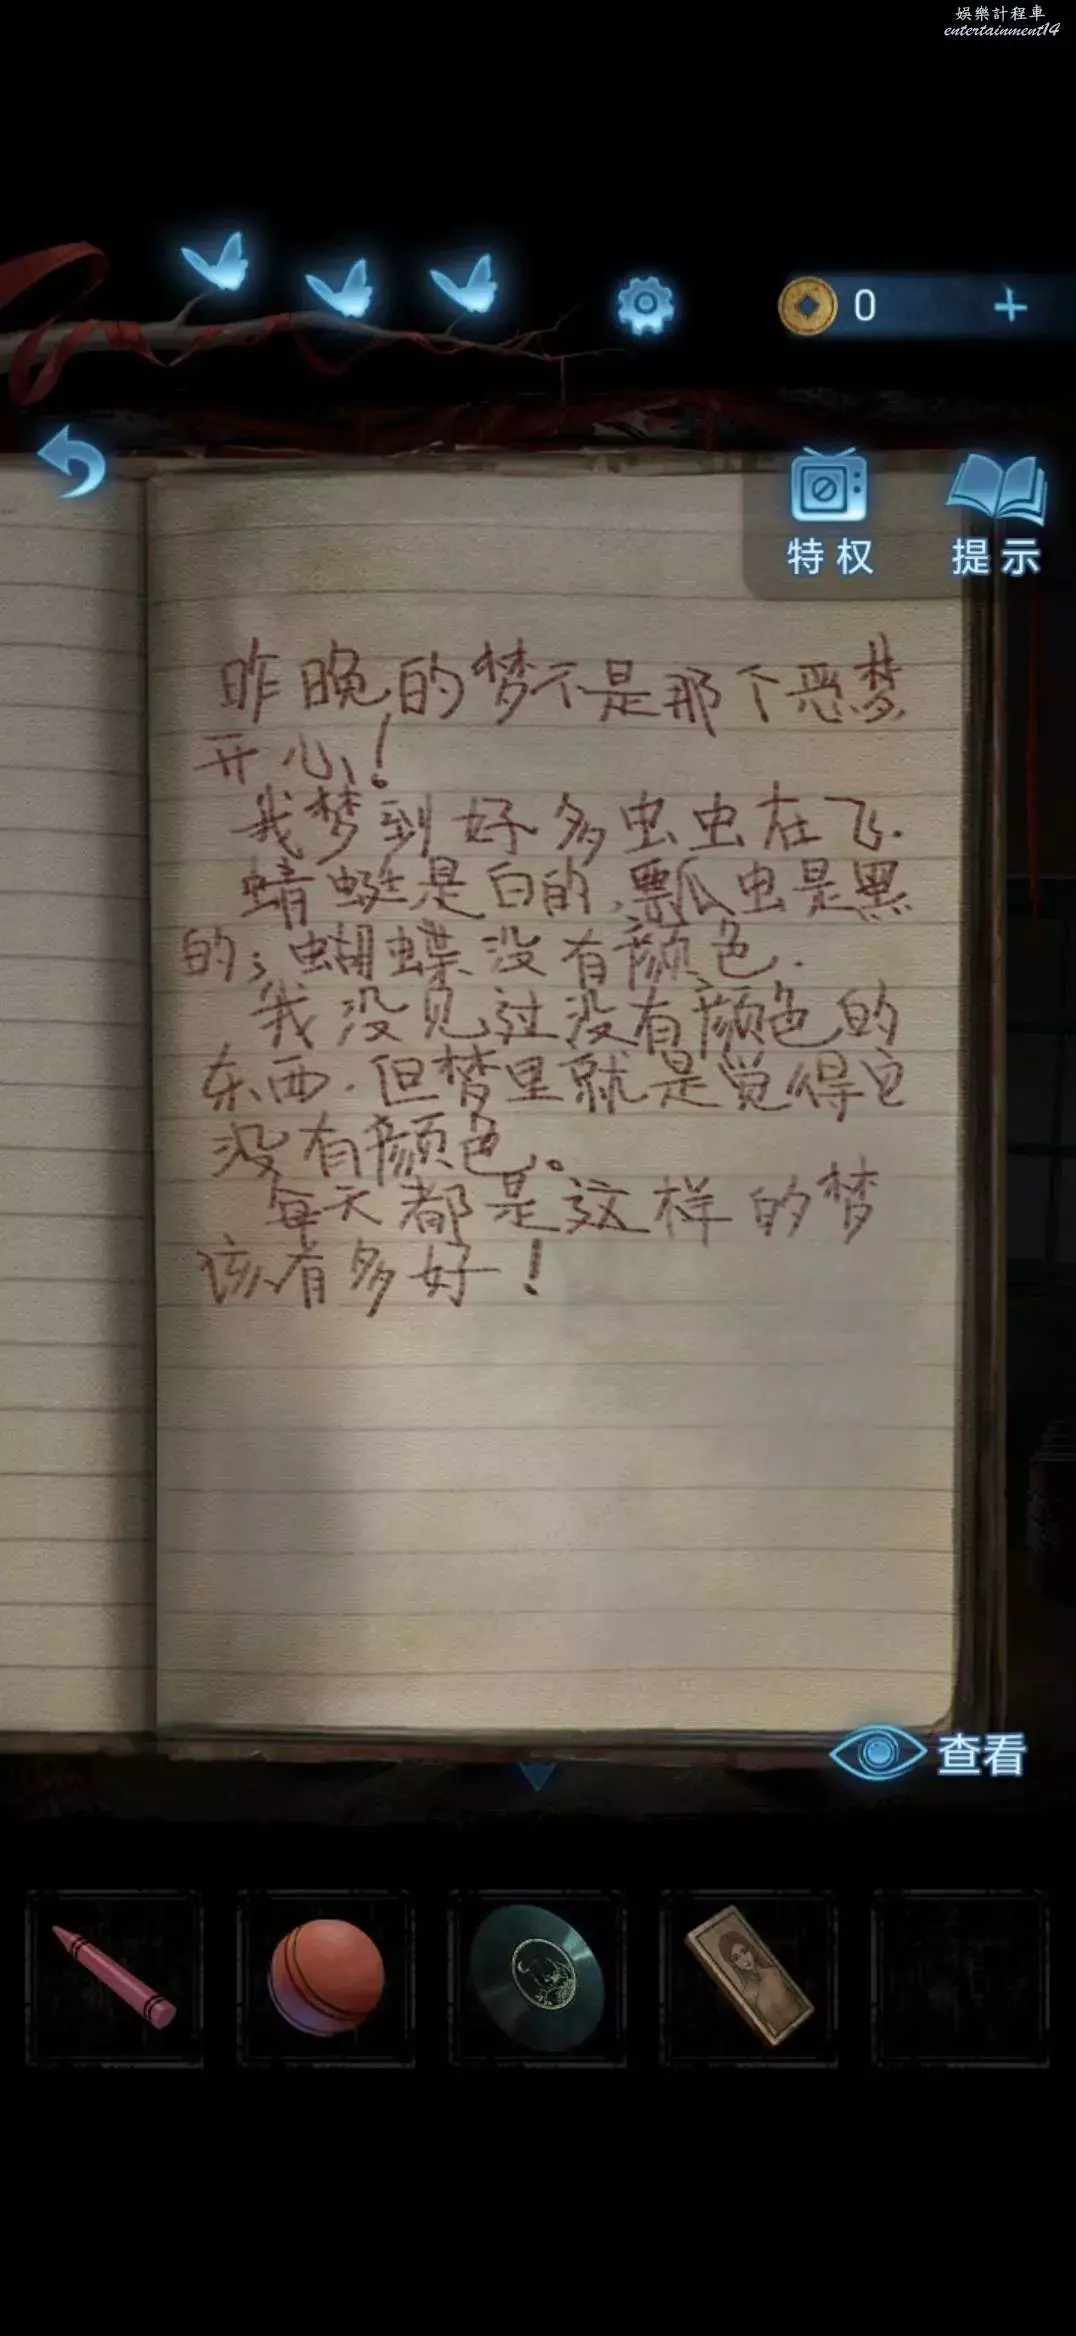 娛樂計程車
entertainment14
0
特权
提示
昨晚的梦不是那个恶梦
开心!
我梦到好多虫虫在飞.
蜻蜓是白的,瓢虫是黑
的;蝴蝶没有颜色.
我没见过没有颜色的
东西.但梦里就是觉得它
没有颜色。
每天都是这样的梦
该有多好!
查看